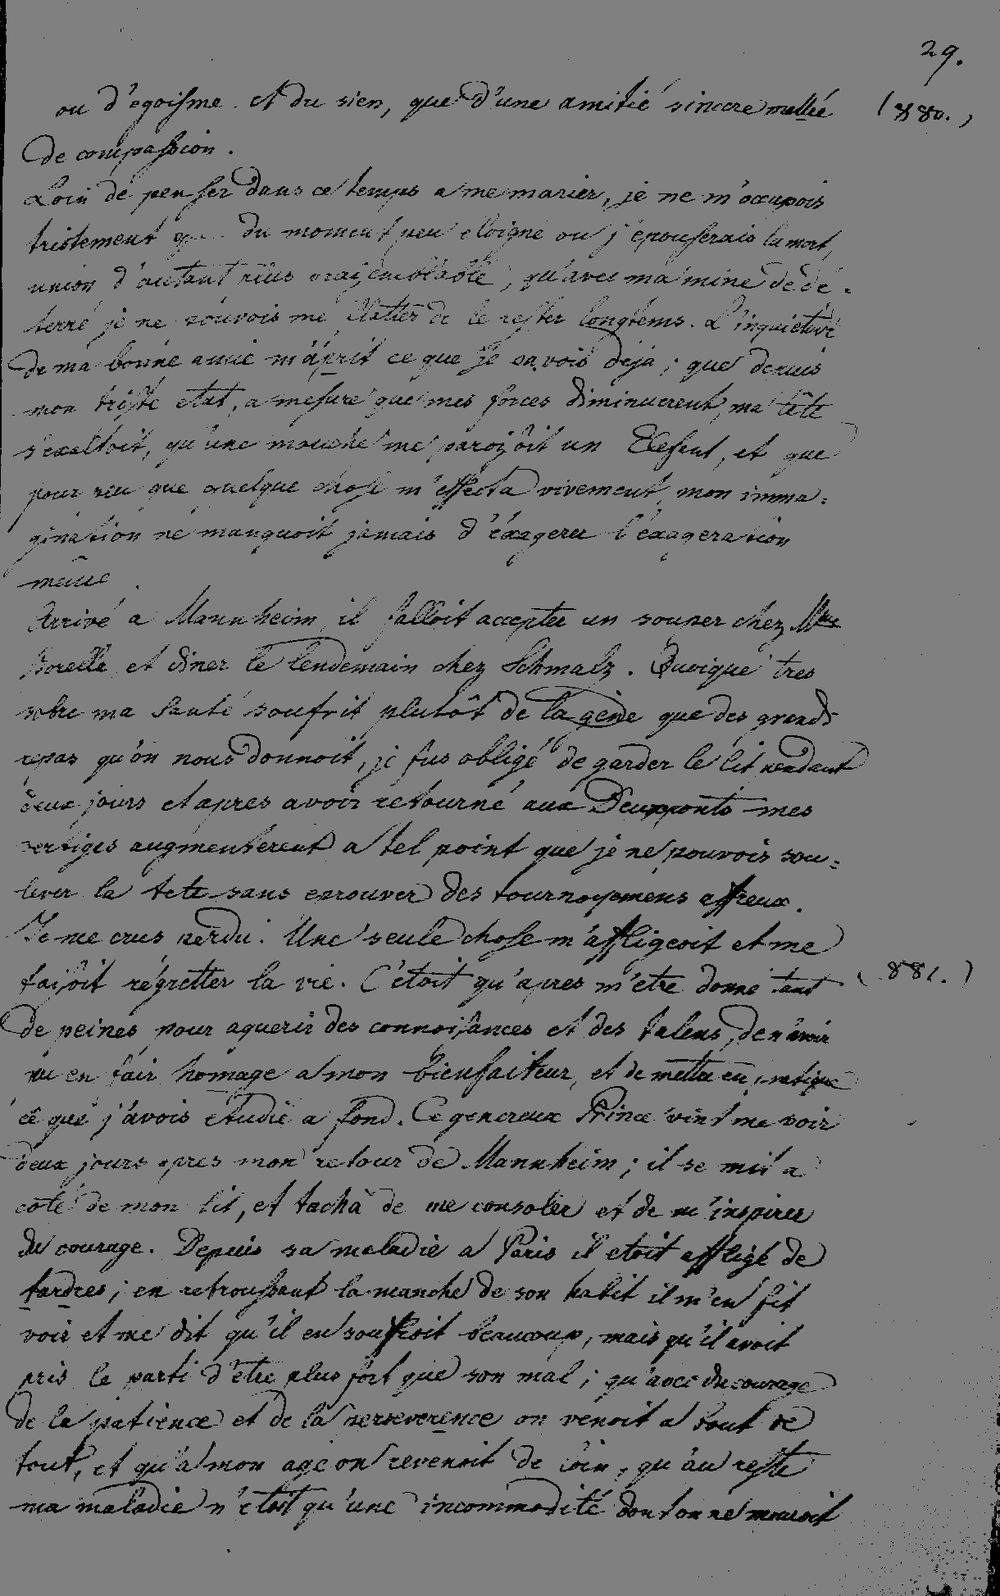 29.
ou d'egoisme et du sien, que d'une amitié sincere mellée (880.)
de compassion.
Loin de penser dans ce temps a me marier, je ne m'occupois
tristement que du moment peu eloigné ou j'epouserais la mort,
union d'autant plus vraisemblable, qu'avec ma mine de dé=
terré je ne pouvois me flatter de le rester longtems. L'inquietude
de ma bonne amie m'aprit ce que je savois deja; que depuis
mon triste etat, a mesure que mes forces diminuerent, ma tête
s'exaltoit, qu'une mouche me paroizoit un Elefent, et que
pour peu que quelque chose m'affecta vivement, mon imma=
gination ne manquoit jamais d'éxagerer l'éxageration
même.
Arrivé a Mannheim il falloit accepter un souper chez Mme
Borelle et diner le lendemain chez Schmalz. Quoique tres
sobre ma santé soufrit plutôt de la gêne que des grands
repas qu'on nous donnoit, je fus obligé de garder le lit pendant
deux jours et apres avoir retourné aux Deuxponts mes
vertiges augmenterent a tel point que je ne pouvois sou=
lever la tete sans eprouver des tournoyemens affreux.
Je me crus perdu. Une seule chose m'affligeoit et me
faisoit régretter la vie. C'étoit qu'apres m'etre donné tant (881.)
de peines pour aquerir des connoisances et des talens, de n'avoir
pu en fair homage a mon bienfaiteur, et de mettre en pratique
ce que j'avois etudié a fond. Ce genereux Prince vint me voir
deux jours apres mon retour de Mannheim; il se mit a
coté de mon lit, et tacha de me consoler et de m'inspirer
du courage. Depuis sa maladie a Paris il etoit affligé de
dardres; en retroussant la manche de son habit il m'en fit
voir et me dit qu'il en souffroit beaucoup, mais qu'il avoit
pris le parti d'être plus fort que son mal; qu'avec du courage
de la patience et de la perseverence on venoit a bout de
tout, et qu'a mon age on revenoit de loin, qu'au reste
ma maladie n'etoit qu'une incommodité dont on ne mouroit